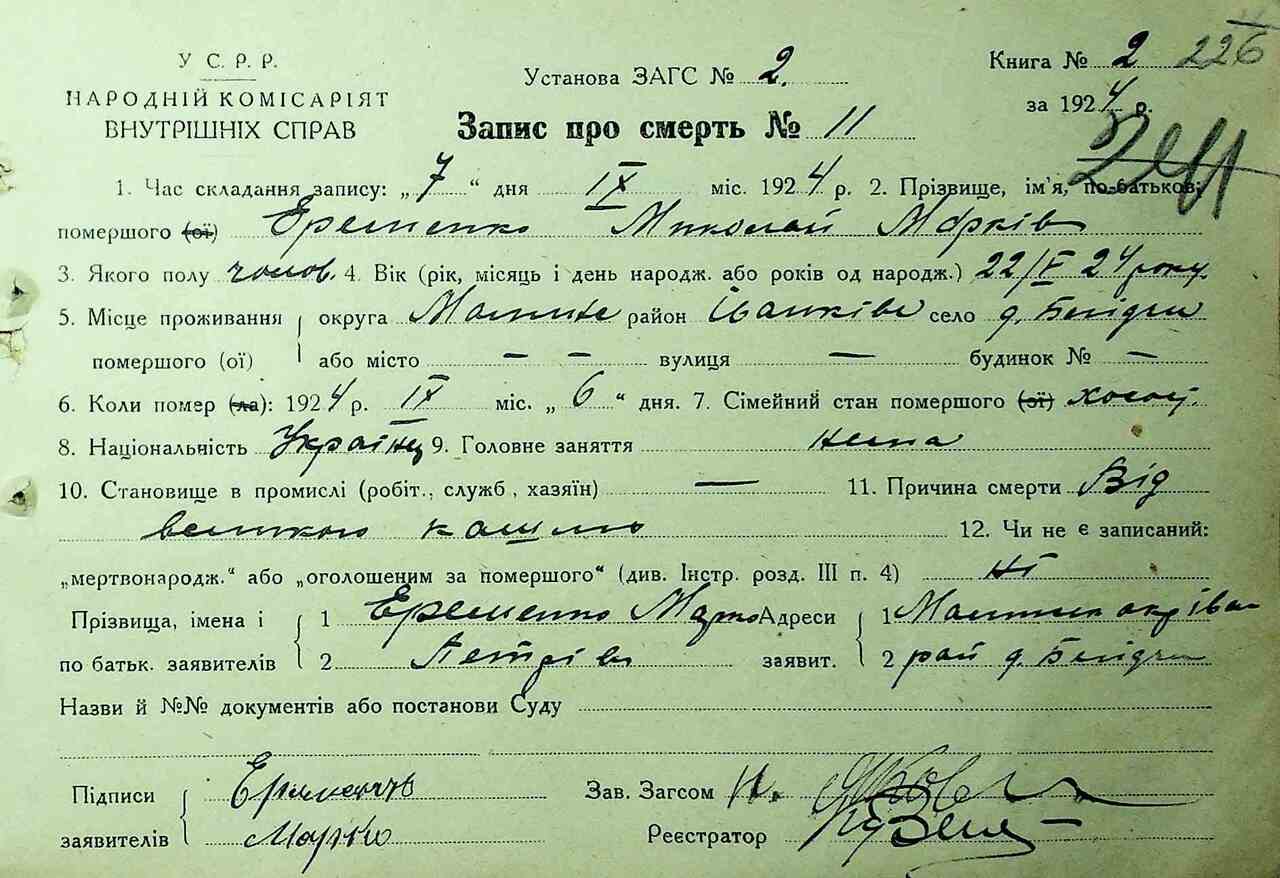 У С. Р. Р.
НАРОДНІЙ КОМІСАРІЯТ
ВНУТРІШНІХ СПРАВ
Установа ЗАГС № 2.
Запис про смерть № 11
Книга № 2 226
за 1924 р.
1. Час складання запису: „7“ дня IX міс. 1924 р. 2. Прізвище, ім'я, по-батькові
помершого (ої) Еременко Миколай Марків
3. Якого полу чолов. 4. Вік (рік, місяць і день народж. або років од народж.) 24 року.
5. Місце проживання округа район Іванків село д.
помершого (ої) або місто — — вулиця — будинок № —
6. Коли помер (ла): 1924 р. IX міс. „6“ дня. 7. Сімейний стан помершого (ої)
8. Національність Українец 9. Головне заняття нема
10. Становище в промислі (робіт., служб, хазяїн) — 11. Причина смерти Від
великого кашлю 12. Чи не є записаний:
„мертвонародж.“ або „оголошеним за помершого“ (див. Інстр. розд. III п. 4) Ні
Прізвища, імена і 1 Еременко Марко Адреси 1
по батьк. заявителів 2 Петрів заявит. 2 рай д.
Назви й №№ документів або постанови Суду
Підписи Еременко Зав. Загсом
заявителів Марко Реєстратор